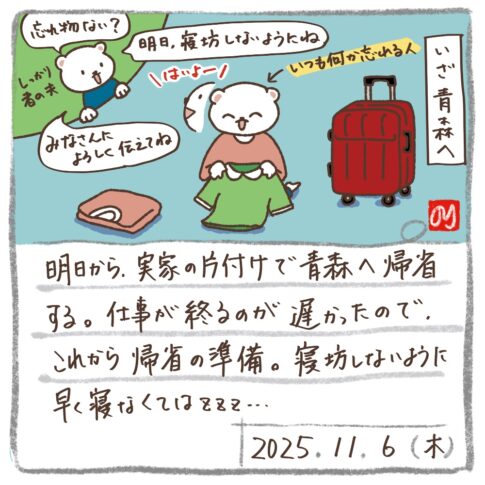 忘れ物ない?
明日、寝坊しないようにね
しっかり
者の夫
みなさんに
よろしく伝えてね
はいよー
いつも何か忘れる人
いざ青森へ
明日から、実家の片付けで青森へ帰省
する。仕事が終るのが遅かったので、
これから帰省の準備。寝坊しないように
早く寝なくてはzzz…
2025.11.6(木)